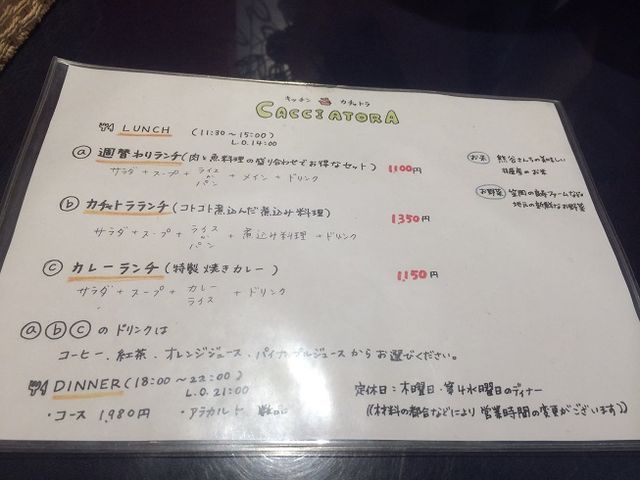 キッチン カチャトラ
CACCIATORA
LUNCH (11:30~15:00)
L.O.14:00
ⓐ 週替わりランチ(肉と魚料理の盛り合わせでお得なセット) 1,100円
サラダ+スープ+ライスかパン+メイン+ドリンク
ⓑ カチャトラランチ(コトコト煮込んだ煮込み料理) 1,350円
サラダ+スープ+ライスかパン+煮込み料理+ドリンク
ⓒ カレーランチ(特製焼きカレー) 1,150円
サラダ+スープ+カレーライス+ドリンク
お米 熊谷さんちの美味しい
のお米
お野菜
地元の新鮮なお野菜
ⓐⓑⓒのドリンクは
コーヒー、紅茶、オレンジジュース、パイナップルジュースからお選びください。
DINNER(18:00~22:00)
L.O.21:00
・コース 1,980円 ・アラカルト
定休日:木曜日・第4水曜日のディナー
((材料の都合などにより営業時間の変更がございます))